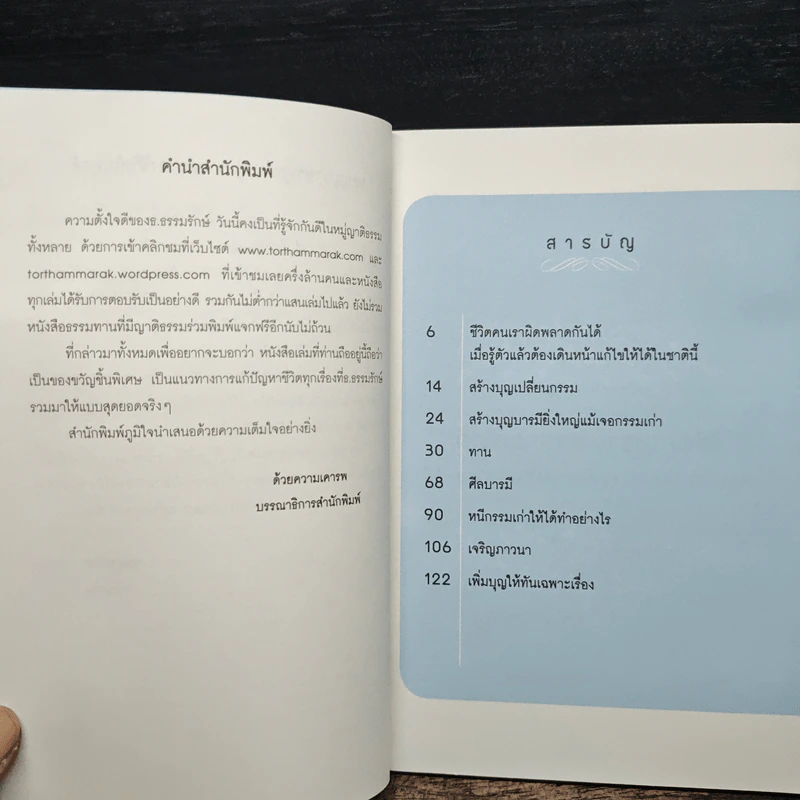 คำนำสำนักพิมพ์
ความตั้งใจดีของธ.ธรรมรักษ์ วันนี้คงเป็นที่รู้จักกันดีในหมู่ญาติธรรม
ทั้งหลาย ด้วยการเข้าคลิกชมที่เว็บไซต์ www.torthammarak.com และ
torthammarak.wordpress.com ที่เข้าชมเลยครึ่งล้านคนและหนังสือ
ทุกเล่มได้รับการตอบรับเป็นอย่างดี รวมกันไม่ต่ำกว่าแสนเล่มไปแล้ว ยังไม่รวม
หนังสือธรรมทานที่มีญาติธรรมร่วมพิมพ์แจกฟรีอีกนับไม่ถ้วน
ที่กล่าวมาทั้งหมดเพื่ออยากจะบอกว่า หนังสือเล่มที่ท่านถืออยู่นี้ถือว่า
เป็นของขวัญชิ้นพิเศษ เป็นแนวทางการแก้ปัญหาชีวิตทุกเรื่องที่ธ.ธรรมรักษ์
รวมมาให้แบบสุดยอดจริงๆ
สำนักพิมพ์ภูมิใจนำเสนอด้วยความเต็มใจอย่างยิ่ง
ด้วยความเคารพ
บรรณาธิการสำนักพิมพ์
สารบัญ
6 ชีวิตคนเราผิดพลาดกันได้
เมื่อรู้ตัวแล้วต้องเดินหน้าแก้ไขให้ได้ในชาตินี้
14 สร้างบุญเปลี่ยนกรรม
24 สร้างบุญบารมียิ่งใหญ่แม้เจอกรรมเก่า
30 ทาน
68 ศีลบารมี
90 หนีกรรมเก่าให้ได้ทำอย่างไร
106 เจริญภาวนา
122 เพิ่มบุญให้ทันเฉพาะเรื่อง